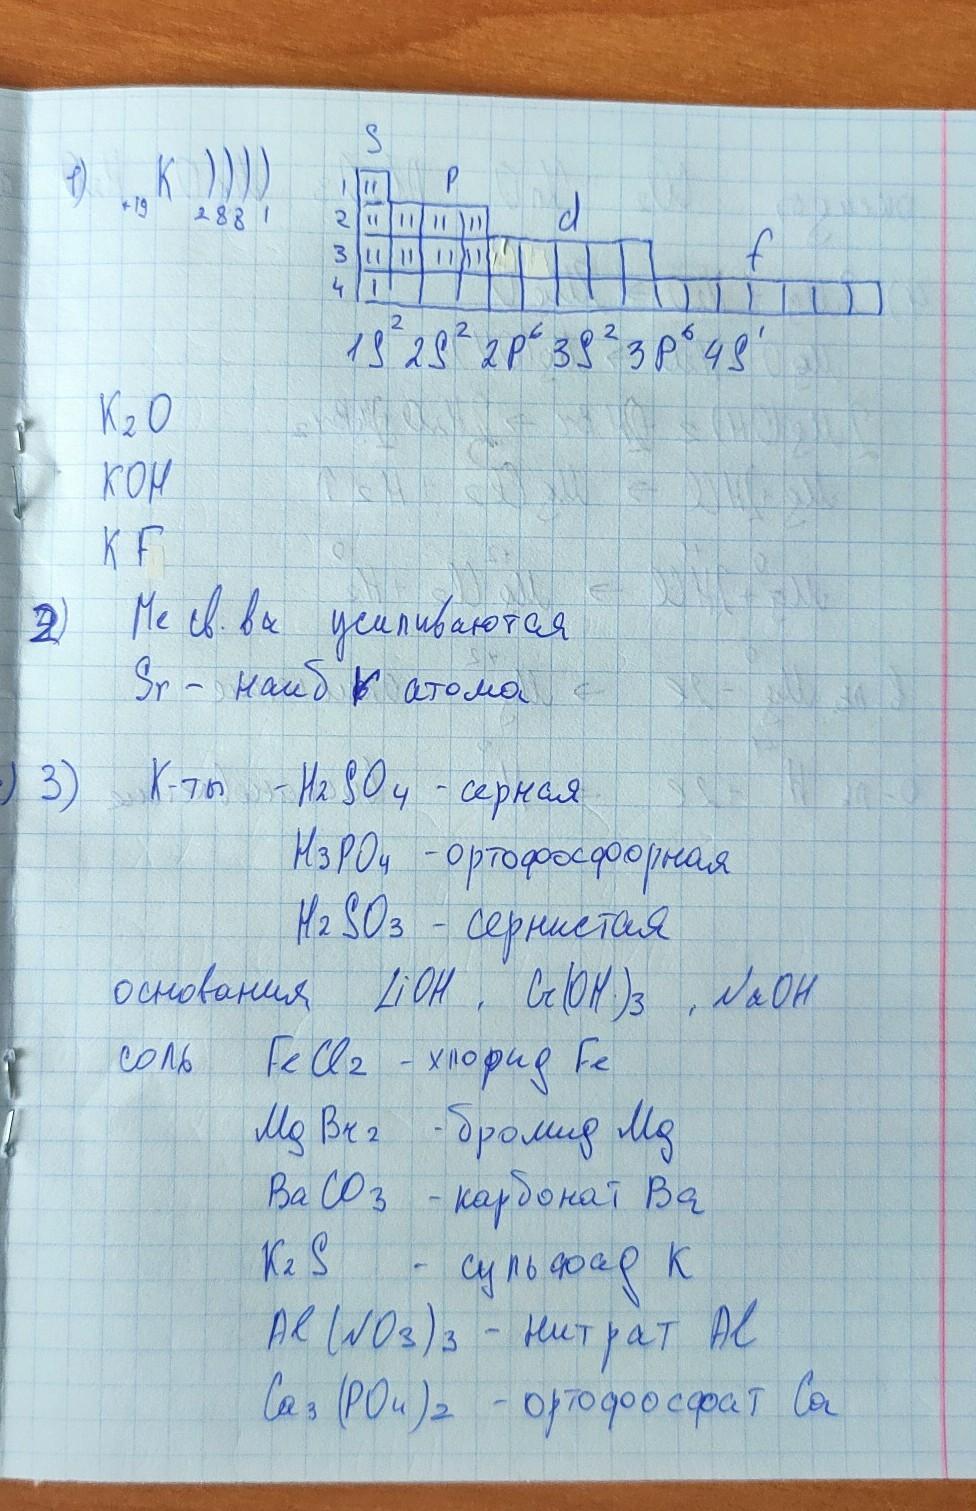 1) +19 K ))))
2 8 8 1
S
1 P
2 d
3 f
4
1S² 2S² 2P⁶ 3S² 3P⁶ 4S¹
K₂O
KOH
KF
2) Ме св. ва усиливаются
Sr - наиб R атома
3) К-ты - H₂SO₄ - серная
H₃PO₄ - ортофосфорная
H₂SO₃ - сернистая
основания LiOH, Cr(OH)₃, NaOH
соль FeCl₂ - хлорид Fe
MgBr₂ - бромид Mg
BaCO₃ - карбонат Ba
K₂S - сульфад K
Al(NO₃)₃ - нитрат Al
Ca₃(PO₄)₂ - ортофосфат Ca